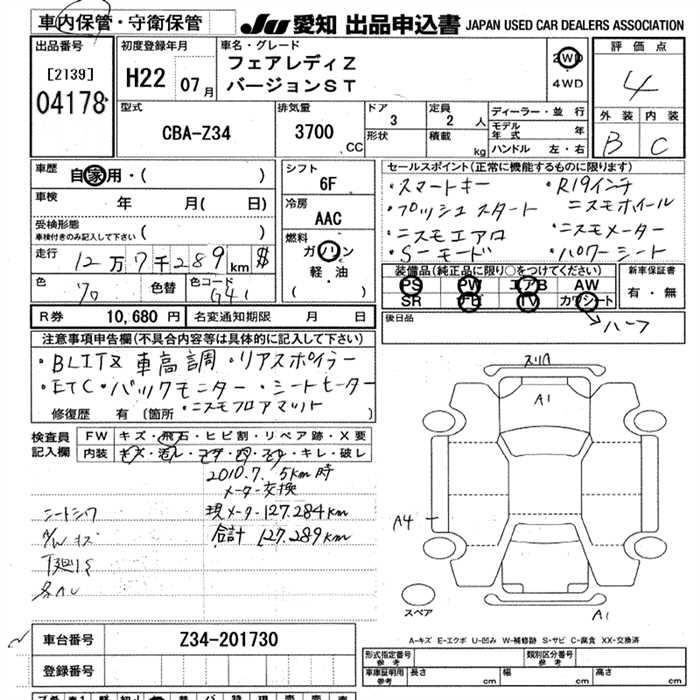 車内保管・守衛保管
JU 愛知 出品申込書 JAPAN USED CAR DEALERS ASSOCIATION
出品番号
[2139]
04178
初度登録年月
H22 07月
車名・グレード
フェアレディZ
バージョンST
2WD
4WD
評価点
4
外装 内装
B C
型式
CBA-Z34
排気量
3700 CC
ドア 3
形状
定員 2 人
積載 kg
ディーラー・並行
モデル年式 年
ハンドル 左・右
車歴
自家用・( )
車検 年 月( 日)
受検形態
車検付きのみ記入して下さい ( )
走行 12万7千289km $
色 クロ 色替 色コード G41
シフト
6F
冷房
AAC
燃料
ガソリン
軽・油
( )
セールスポイント(正常に機能するものに限ります)
・スマートキー ・R19インチ
・プッシュスタート ニスモホイール
・ニスモエアロ ・ニスモメーター
・Sーモード ・パワーシート
装備品(純正品に限り○をつけてください)
PS PW エアB AW
SR ナビ TV カワシート
→ハーフ
新車保証書
有・無
後日品
R券 10,680円 名変通知期限 月 日
注意事項申告欄(不具合内容等は具体的に記入して下さい)
・BLITZ 車高調 ・リアスポイラー
・ETC ・バックモニター ・シートヒーター
・ニスモフロアマット
修復歴 有(箇所
検査員
記入欄
FW キズ・飛石・ヒビ割・リペア跡・X要
内装 キズ・汚レ・コゲ・凹・スレ・キレ・破レ
2010.7. 5km時
メーター交換
現メーター127.284km
合計 127.289km
シートシワ
A/W キズ
下廻りS
スリハ
A1
A4
A1
スペア
A-キズ E-エクボ U-凹み W-補修跡 S-サビ C-腐食 XX-交換済
車台番号 Z34-201730
登録番号
形式指定番号
参考
類別区分番号
参考
車庫証明用
参考
長さ cm 幅 cm 高さ cm